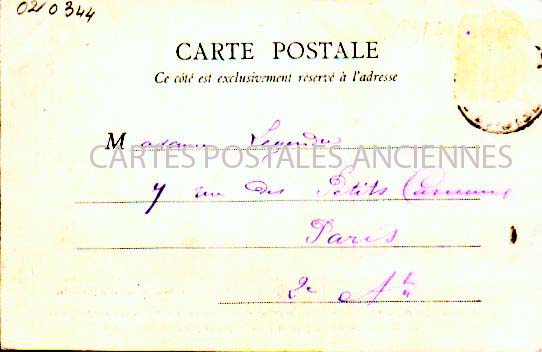 020344
CARTE POSTALE
Ce côté est exclusivement réservé à l'adresse
Madame Legendre
CARTES POSTALES ANCIENNES
7 rue des Petits Carreaux
Paris
2e Art